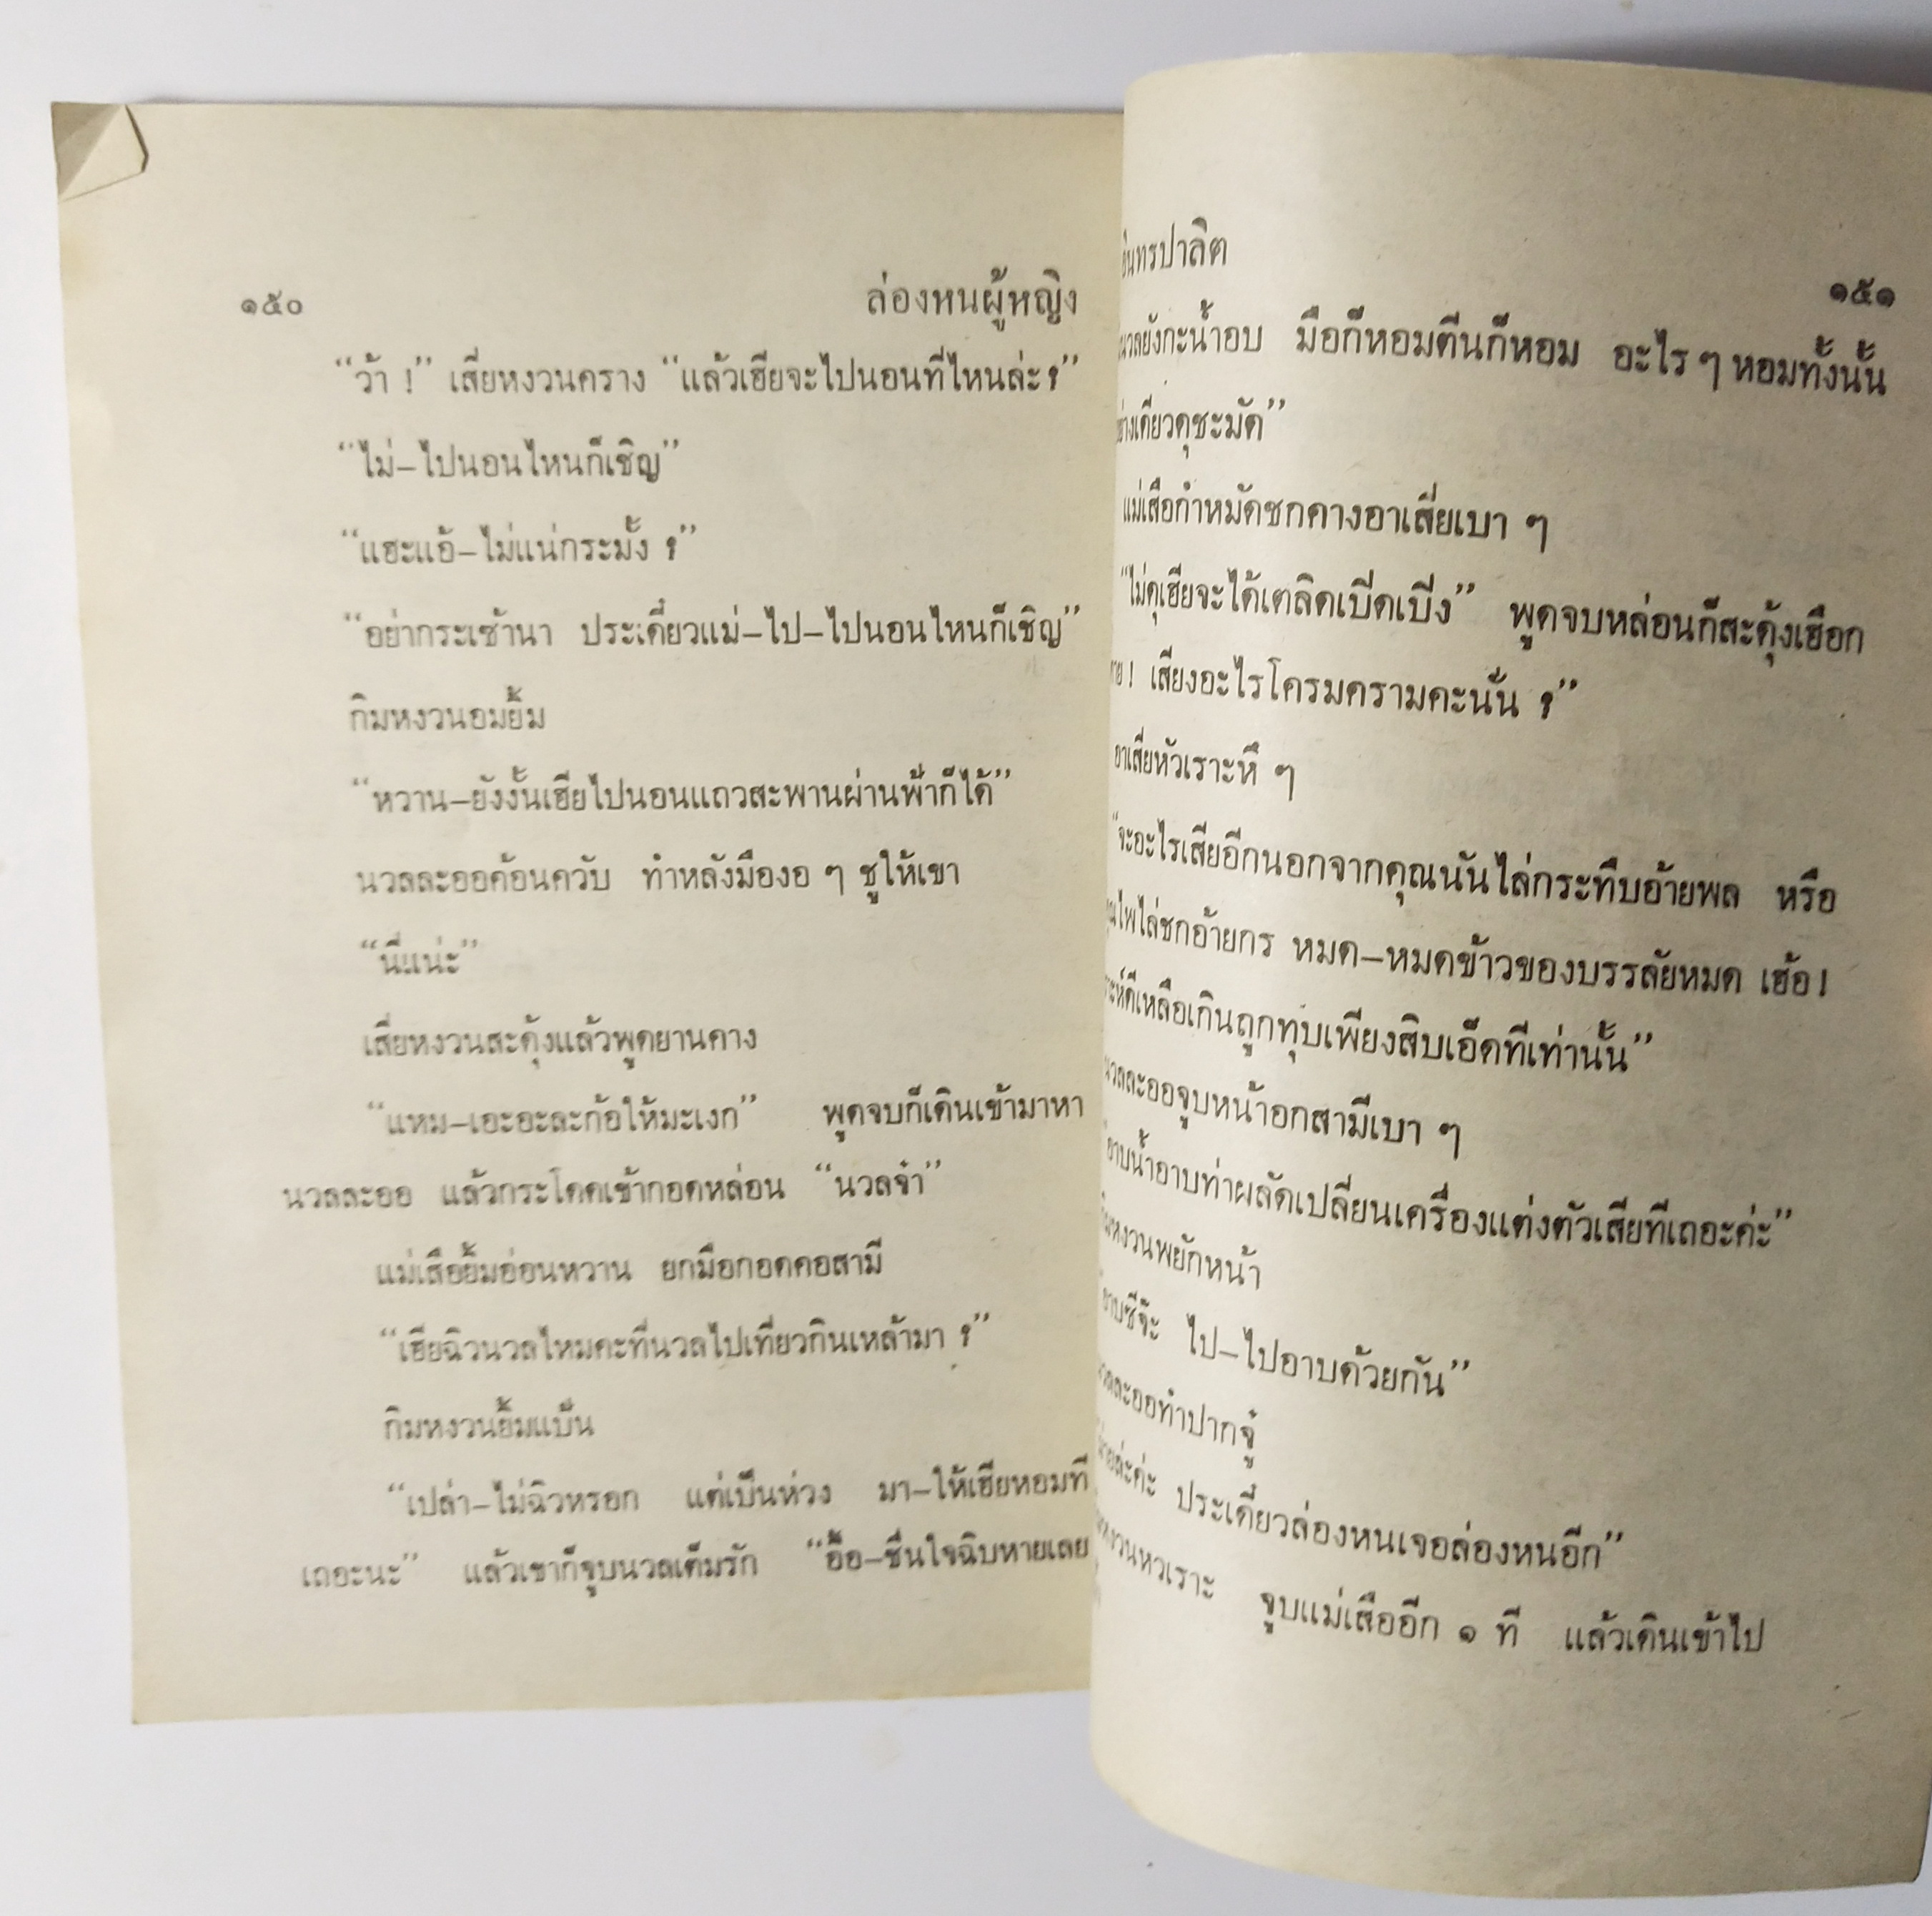 ๑๕๐ ล่องหนผู้หญิง
“ว้า !” เสี่ยหงวนคราง “แล้วเฮียจะไปนอนที่ไหนล่ะ ?”
“ไม่–ไปนอนไหนก็เชิญ”
“แฮะแอ้–ไม่แน่กระมั้ง ?”
“อย่ากระเซ้านา ประเดี๋ยวแม่–ไป–ไปนอนไหนก็เชิญ”
กิมหงวนอมยิ้ม
“หวาน–ยังงั้นเฮียไปนอนแถวสะพานผ่านฟ้าก็ได้”
นวลละออค้อนควับ ทำหลังมืองอ ๆ ชูให้เขา
“นี่แน่ะ”
เสี่ยหงวนสะดุ้งแล้วพูดยานคาง
“แหม–เอะอะละก้อให้มะเงก” พูดจบก็เดินเข้ามาหา
นวลละออ แล้วกระโดดเข้ากอดหล่อน “นวลจ๋า”
แม่เสือยิ้มอ่อนหวาน ยกมือกอดคอสามี
“เฮียฉิวนวลไหมคะที่นวลไปเที่ยวกินเหล้ามา ?”
กิมหงวนยิ้มแป้น
“เปล่า–ไม่ฉิวหรอก แต่เป็นห่วง มา–ให้เฮียหอมที
เถอะนะ” แล้วเขาก็จูบนวลเต็มรัก “อื้อ–ชื่นใจฉิบหายเลย
อินทรปาลิต ๑๕๑
นวลยังกะน้ำอบ มือก็หอมตีนก็หอม อะไร ๆ หอมทั้งนั้น
อย่างเดียวดุชะมัด”
แม่เสือกำหมัดชกคางอาเสี่ยเบา ๆ
“ไม่ดุเฮียจะได้เตลิดเปิดเปิง” พูดจบหล่อนก็สะดุ้งเฮือก
! เสียงอะไรโครมครามคะนั่น ?”
อาเสี่ยหัวเราะหึ ๆ
“จะอะไรเสียอีกนอกจากคุณนันไล่กระทืบอ้ายพล หรือ
คุณไพไล่ชกอ้ายกร หมด–หมดข้าวของบรรลัยหมด เฮ้อ !
เคราะห์ดีเหลือเกินถูกทุบเพียงสิบเอ็ดทีเท่านั้น”
นวลละออจูบหน้าอกสามีเบา ๆ
“อาบน้ำอาบท่าผลัดเปลี่ยนเครื่องแต่งตัวเสียทีเถอะค่ะ”
กิมหงวนพยักหน้า
“อาบซีจ๊ะ ไป–ไปอาบด้วยกัน”
นวลละออทำปากจู๋
ประเดี๋ยวล่องหนเจอล่องหนอีก”
กิมหงวนหัวเราะ จูบแม่เสืออีก ๑ ที แล้วเดินเข้าไป